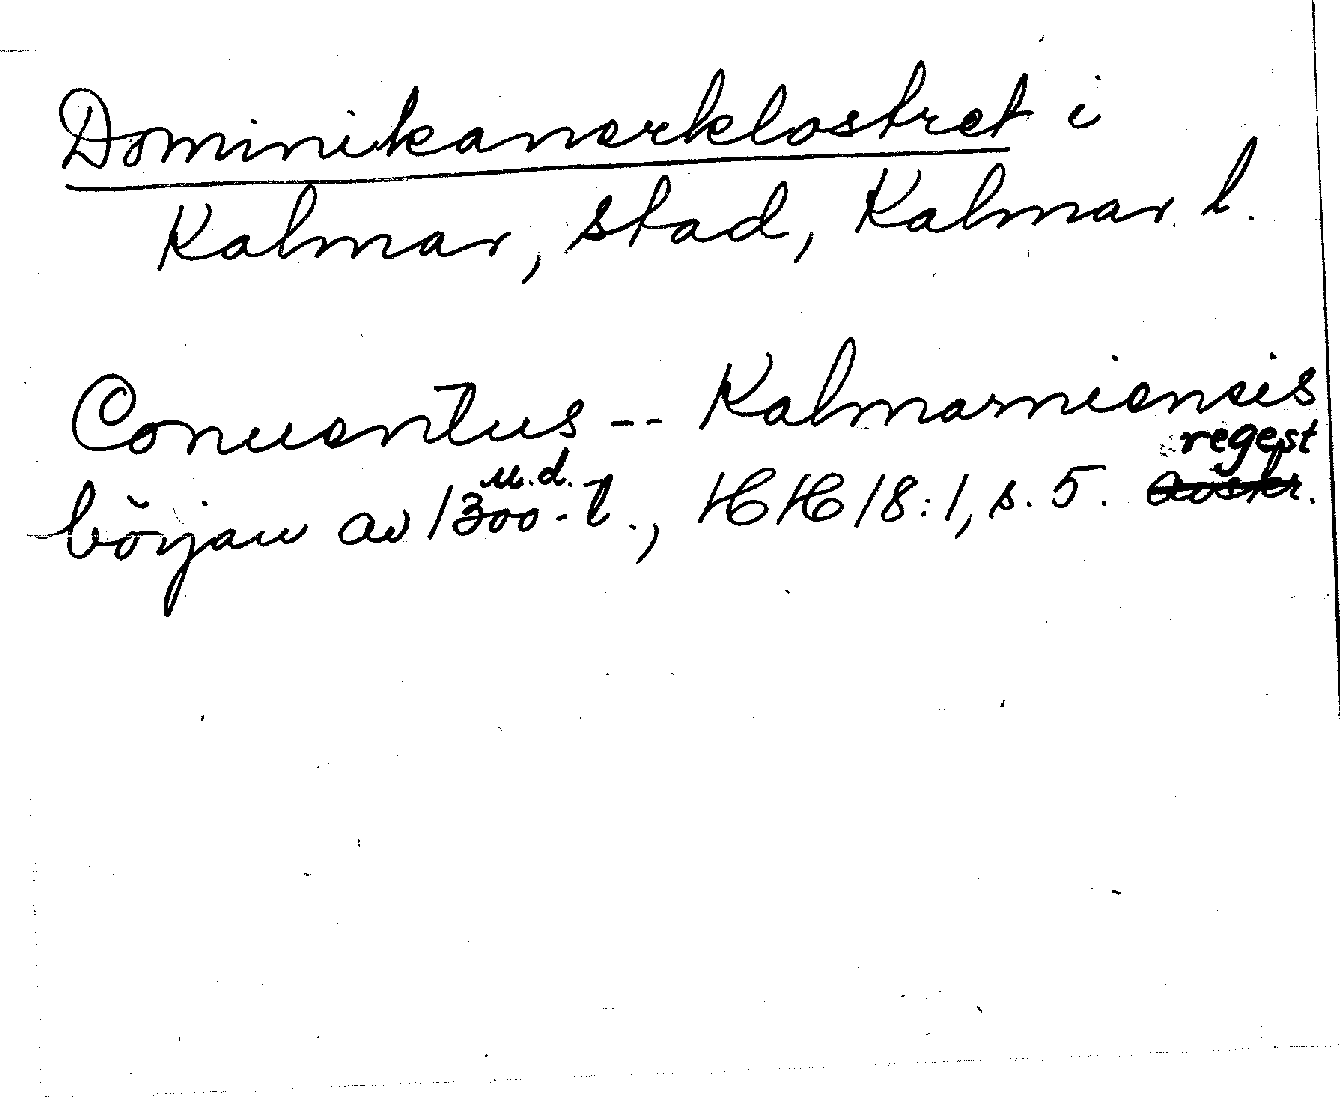 Dominikanerklostret i
Kalmar, stad, Kalmar l.
Conuentus -- Kalmarniensis
regest
u.d.
början av 1300-t., HH 18:1, s. 5. avskr.